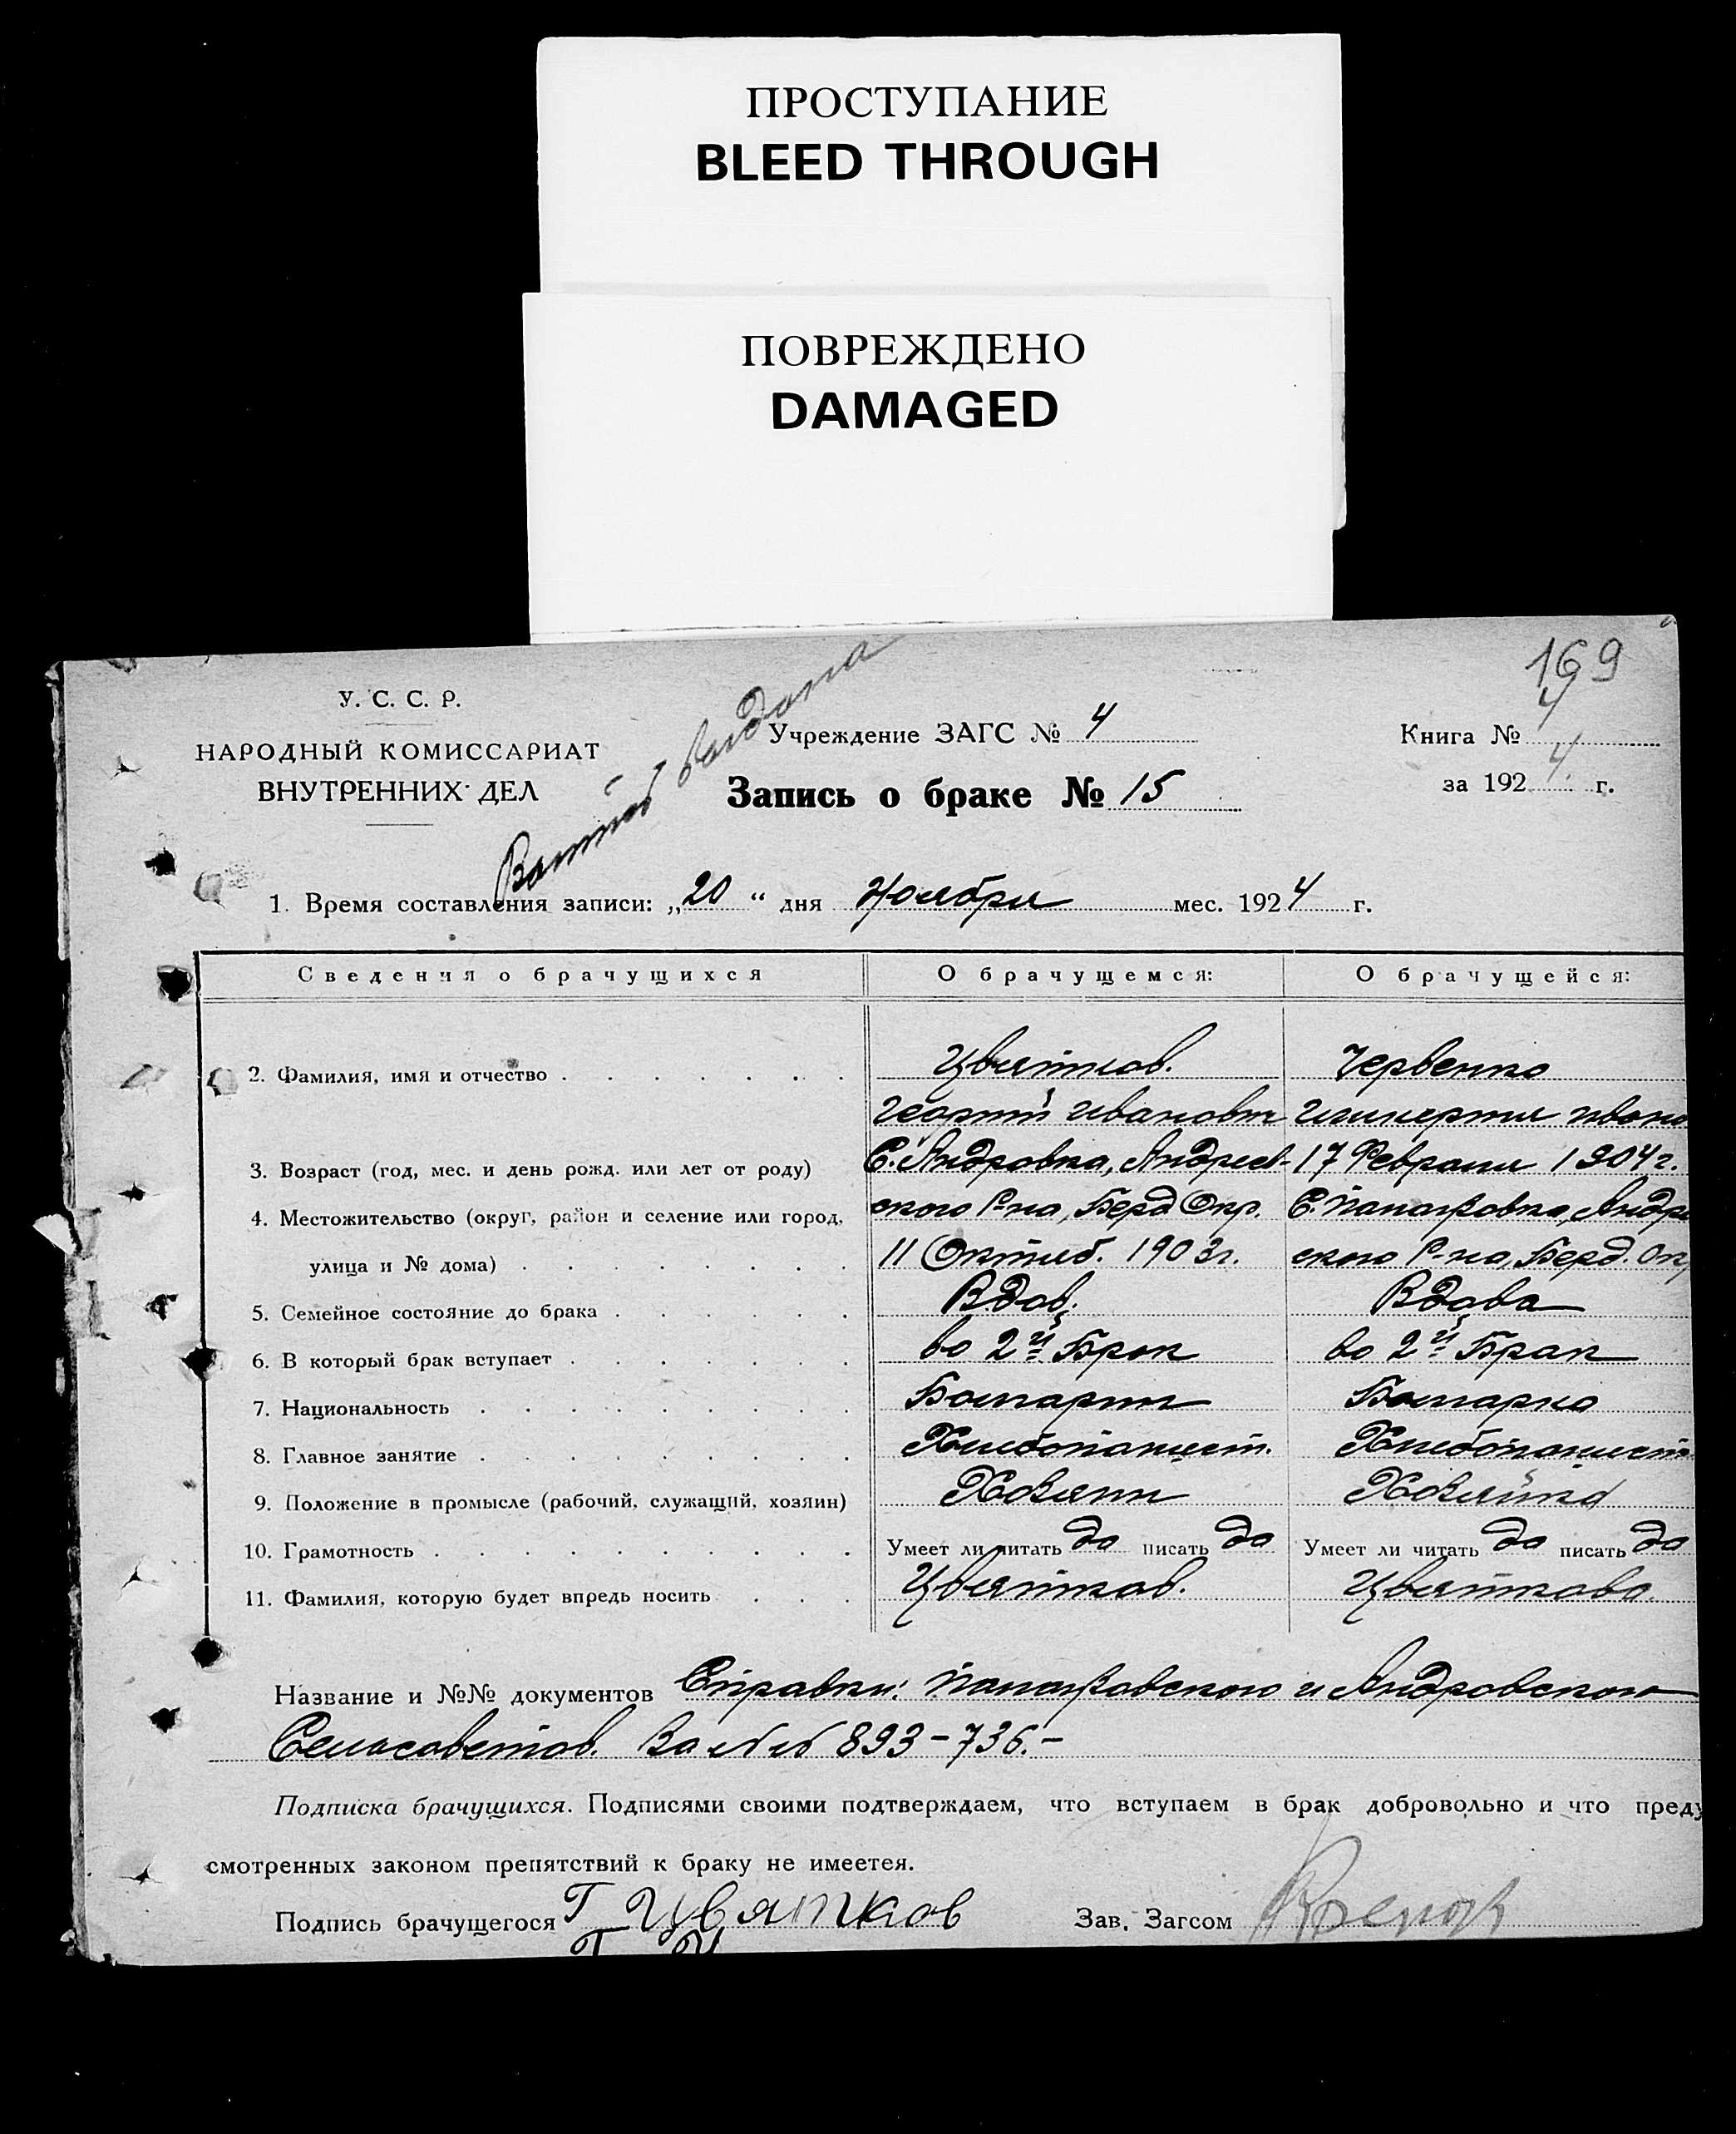 ПРОСТУПАНИЕ
BLEED THROUGH
ПОВРЕЖДЕНО
DAMAGED
169
У. С. С. Р.
НАРОДНЫЙ КОМИССАРИАТ
ВНУТРЕННИХ ДЕЛ
Учреждение ЗАГС № 4
Книга № 4
за 1924 г.
Запись о браке № 15
1. Время составления записи: „20“ дня Ноября мес. 1924 г.
Сведения о брачущихся О брачущемся: О брачущейся:
2. Фамилия, имя и отчество Цвятков. Червенко
Георгий Иванович Ивано
3. Возраст (год, мес. и день рожд. или лет от роду) С. Андровка, Андреев- 17 Февраля 1904 г.
4. Местожительство (округ, район и селение или город, ского Р-на, Берд Окр. С. Андре
улица и № дома) 11 Октяб. 1903 г. ского Р-на, Берд. Ок
5. Семейное состояние до брака Вдов. Вдова
6. В который брак вступает во 2й Брак во 2й Брак
7. Национальность Болгарин Болгарка
8. Главное занятие Хлебопашест. Хлебопашест
9. Положение в промысле (рабочий, служащий, хозяин) Хозяин Хозяйка
10. Грамотность Умеет ли читать да писать да Умеет ли читать да писать да
11. Фамилия, которую будет впредь носить Цвятков. Цвяткова.
Название и №№ документов Справки: и Андровского
Сельсоветов. За №№ 893-736.-
Подписка брачущихся. Подписями своими подтверждаем, что вступаем в брак добровольно и что преду
смотренных законом препятствий к браку не имеетея.
Подпись брачущегося Г Цвятков Зав. Загсом